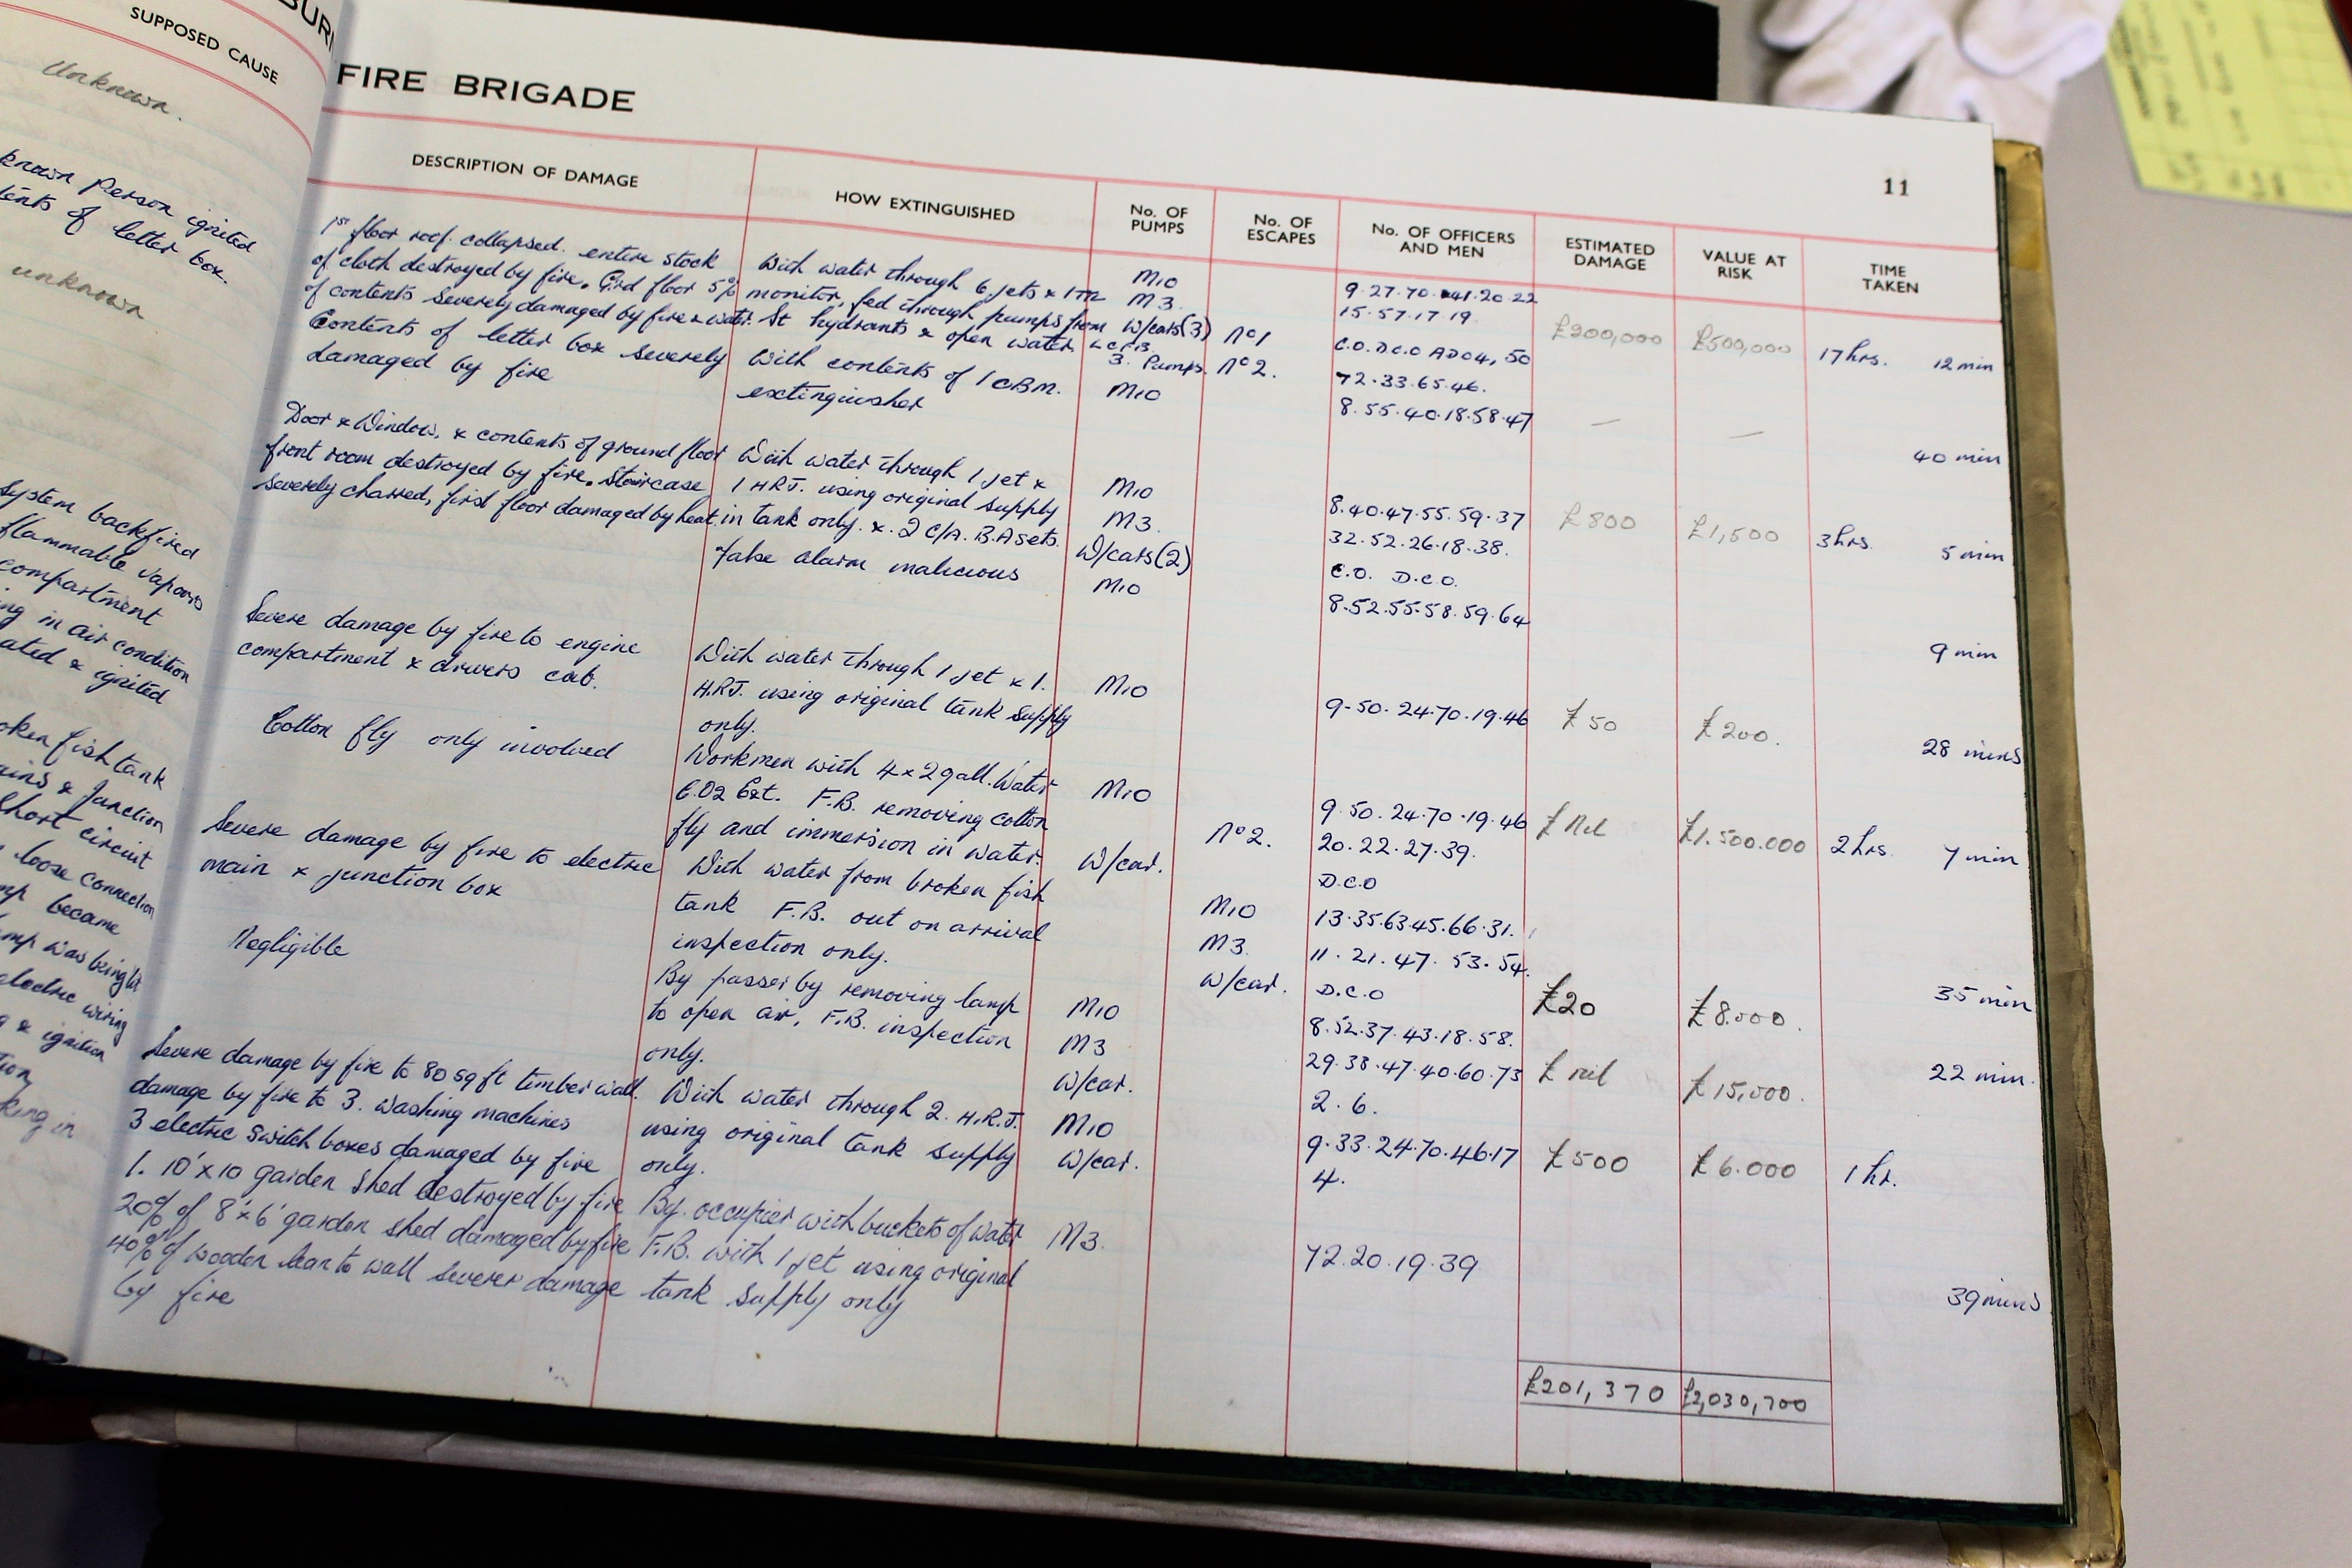 SUPPOSED CAUSE
Unknown.
known Person ignited
tents of letter box.
unknown
System backfired
flammable vapours
compartment
ing in air condition
ated & ignited
oken fish tank
ains & Junction
Short circuit
loose connection
mp became
mp was being lit
electric wiring
& ignition
king in
FIRE BRIGADE
11
DESCRIPTION OF DAMAGE
HOW EXTINGUISHED
No. OF PUMPS
No. OF ESCAPES
No. OF OFFICERS AND MEN
ESTIMATED DAMAGE
VALUE AT RISK
TIME TAKEN
1st floor roof collapsed. entire stock
of cloth destroyed by fire. Grd floor 5%
of contents severely damaged by fire & water.
With water through 6 jets & 1
monitor, fed through pumps from
St hydrants & open water
M10
M3.
W/cars(3)
L.C.F.B.
3. Pumps.
No1
No2.
9.27.70.41.20.22
15.57.17.19.
C.O. D.C.O ADO4, 50
72.33.65.46.
£200,000
£500,000
17hrs. 12min
Contents of letter box severely
damaged by fire
With contents of 1 CBM.
extinguisher
M10
8.55.40.18.58.47
—
—
40 min
Door & Window, & contents of ground floor
front room destroyed by fire. Staircase
severely charred, first floor damaged by heat.
With water through 1 jet &
1 H.R.J. using original supply
in tank only. & 2 C/A. B.A sets.
M10
M3.
W/cars(2)
8.40.47.55.59.37
32.52.26.18.38.
C.O. D.C.O.
£800
£1,500
3hrs. 5min
False alarm malicious
M10
8.52.55.58.59.64
9min
Severe damage by fire to engine
compartment & drivers cab.
With water through 1 jet & 1.
H.R.J. using original tank supply
only.
M10
9-50.24.70.19.46
£50
£200.
28 mins
Cotton fly only involved
Workmen with 4 x 2 gall. Water
C.O2 Ext. F.B. removing cotton
fly and immersion in water.
M10
W/car.
No2.
9.50.24.70.19.46
20.22.27.39.
D.C.O
£Nil
£1.500.000
2hrs. 7min
Severe damage by fire to electric
main & junction box
With water from broken fish
tank F.B. out on arrival
inspection only.
M10
M3.
W/car.
13.35.63.45.66.31.
11.21.47.53.54.
D.C.O
£20
£8.000.
35min
Negligible
By passer by removing lamp
to open air. F.B. inspection
only.
M10
M3
W/car.
8.52.37.43.18.58.
29.38.47.40.60.73
2.6.
£nil
£15,000.
22min.
Severe damage by fire to 80 sq ft timber wall.
damage by fire to 3. washing machines
3 electric switch boxes damaged by fire
With water through 2. H.R.J.
using original tank supply
only.
M10
W/car.
9.33.24.70.46.17
4.
£500
£6.000
1hr.
1. 10'x10 garden shed destroyed by fire
20% of 8'x6' garden shed damaged by fire
40% of wooden lean to wall severe damage
by fire
By occupier with buckets of water
F.B. with 1 jet using original
tank supply only
M3.
72.20.19.39
39mins
£201,370 £2,030,700